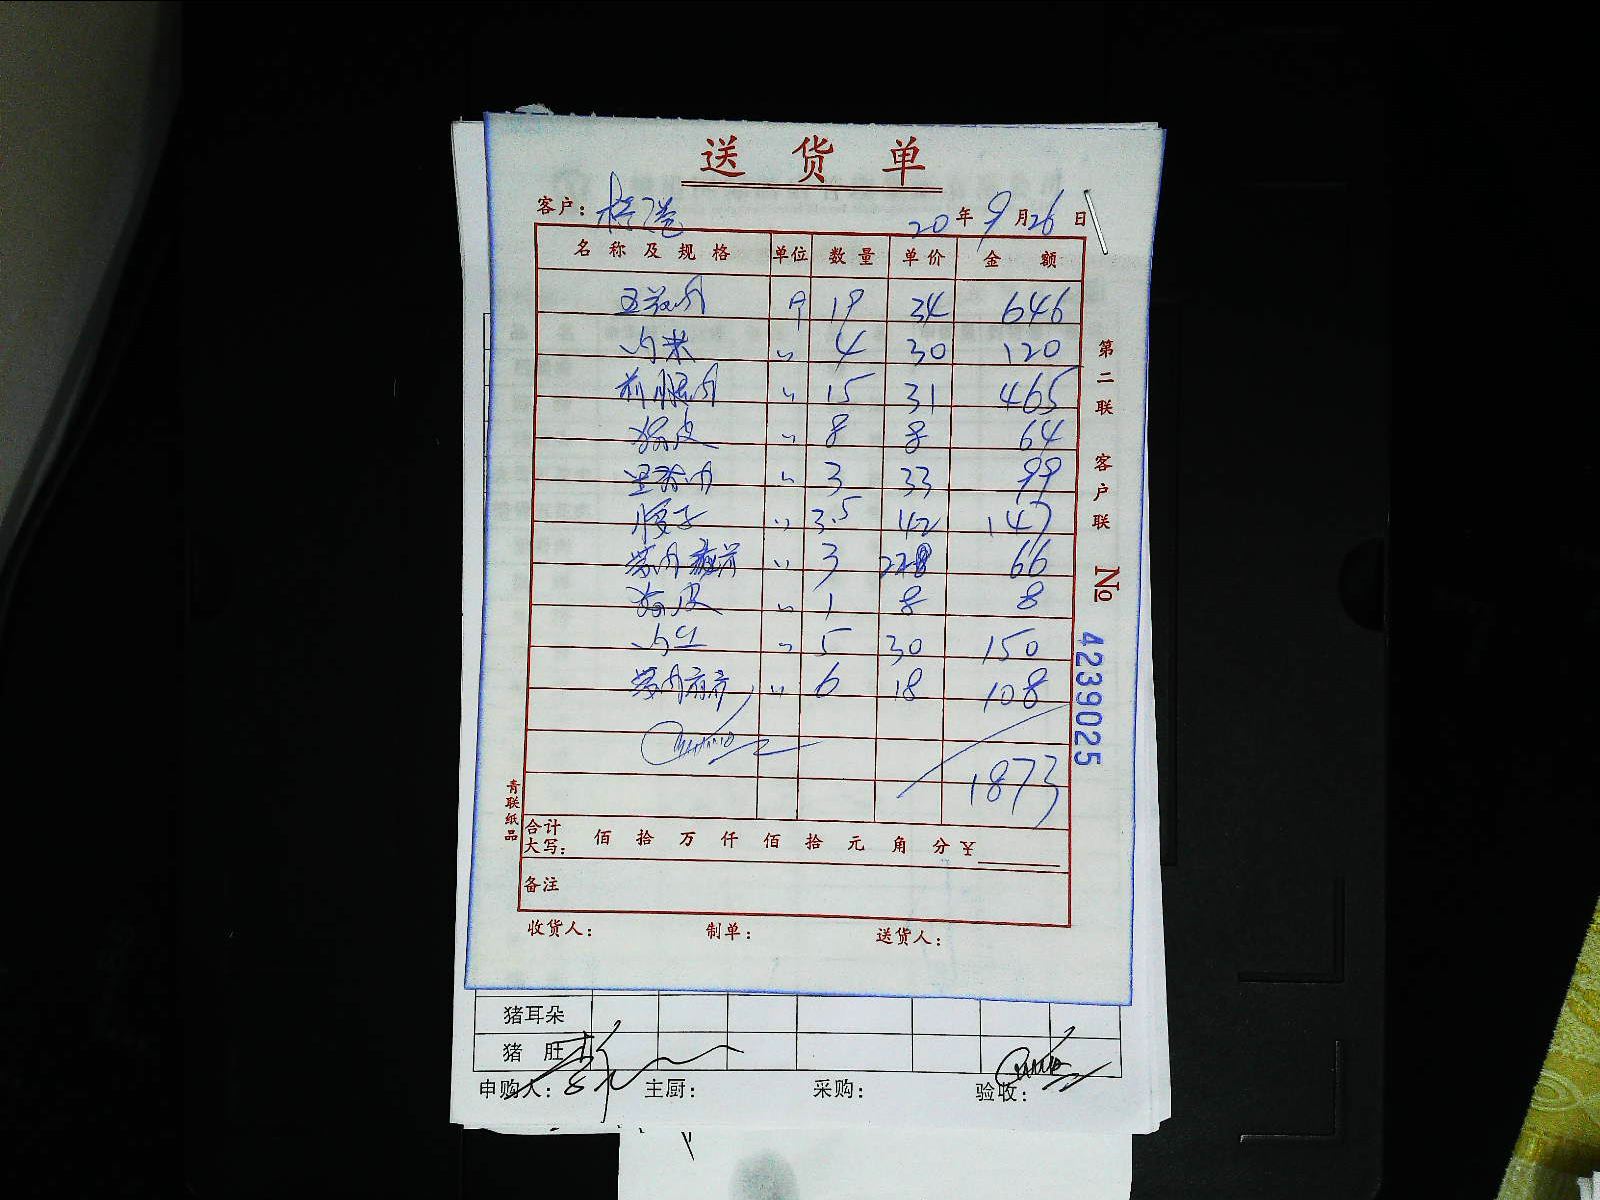 送货单
客户： 20年9月26日
名称及规格 单位 数量 单价 金额
五花肉 个 19 34 646
肉末 〃 4 30 120
前腿肉 〃 15 31 465
猪皮 〃 8 8 64
里脊肉 〃 3 33 99
腰子 〃 3.5 42 147
3 66
猪皮 〃 1 8 8
肉丝 〃 5 30 150
〃 6 18 108
1873
合计大写： 佰 拾 万 仟 佰 拾 元 角 分 ¥
备注
收货人： 制单： 送货人：
第二联 客户联
№ 4239025
青联纸品
猪耳朵
猪肚
申购人： 主厨： 采购： 验收：